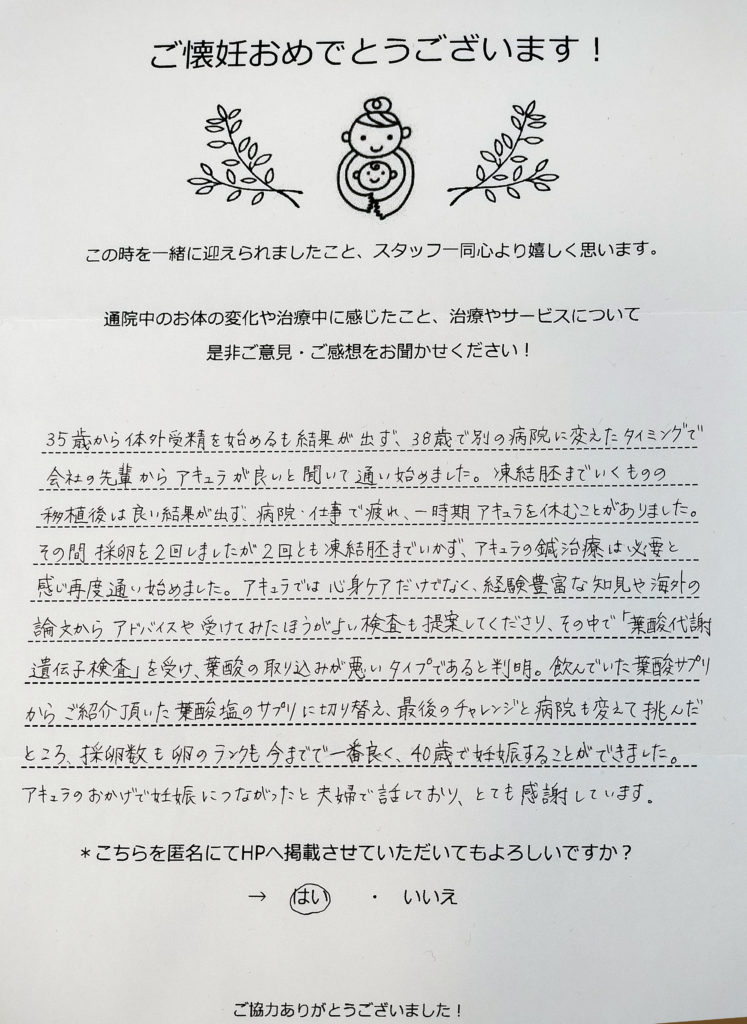 ご懐妊おめでとうございます！
この時を一緒に迎えられましたこと、スタッフ一同心より嬉しく思います。
通院中のお体の変化や治療中に感じたこと、治療やサービスについて
是非ご意見・ご感想をお聞かせください！
35歳から体外受精を始めるも結果が出ず、38歳で別の病院に変えたタイミングで
会社の先輩からアキュラが良いと聞いて通い始めました。凍結胚までいくものの
移植後は良い結果が出ず、病院・仕事で疲れ、一時期アキュラを休むことがありました。
その間採卵を2回しましたが2回とも凍結胚までいかず、アキュラの鍼治療は必要と
感じ再度通い始めました。アキュラでは心身ケアだけでなく、経験豊富な知見や海外の
論文からアドバイスや受けてみたほうがよい検査も提案してくださり、その中で「葉酸代謝
遺伝子検査」を受け、葉酸の取り込みが悪いタイプであると判明。飲んでいた葉酸サプリ
からご紹介頂いた葉酸塩のサプリに切り替え、最後のチャレンジと病院も変えて挑んだ
ところ、採卵数も卵のランクも今までで一番良く、40歳で妊娠することができました。
アキュラのおかげで妊娠につながったと夫婦で話しており、とても感謝しています。
＊こちらを匿名にてHPへ掲載させていただいてもよろしいですか？
→ はい ・ いいえ
ご協力ありがとうございました！